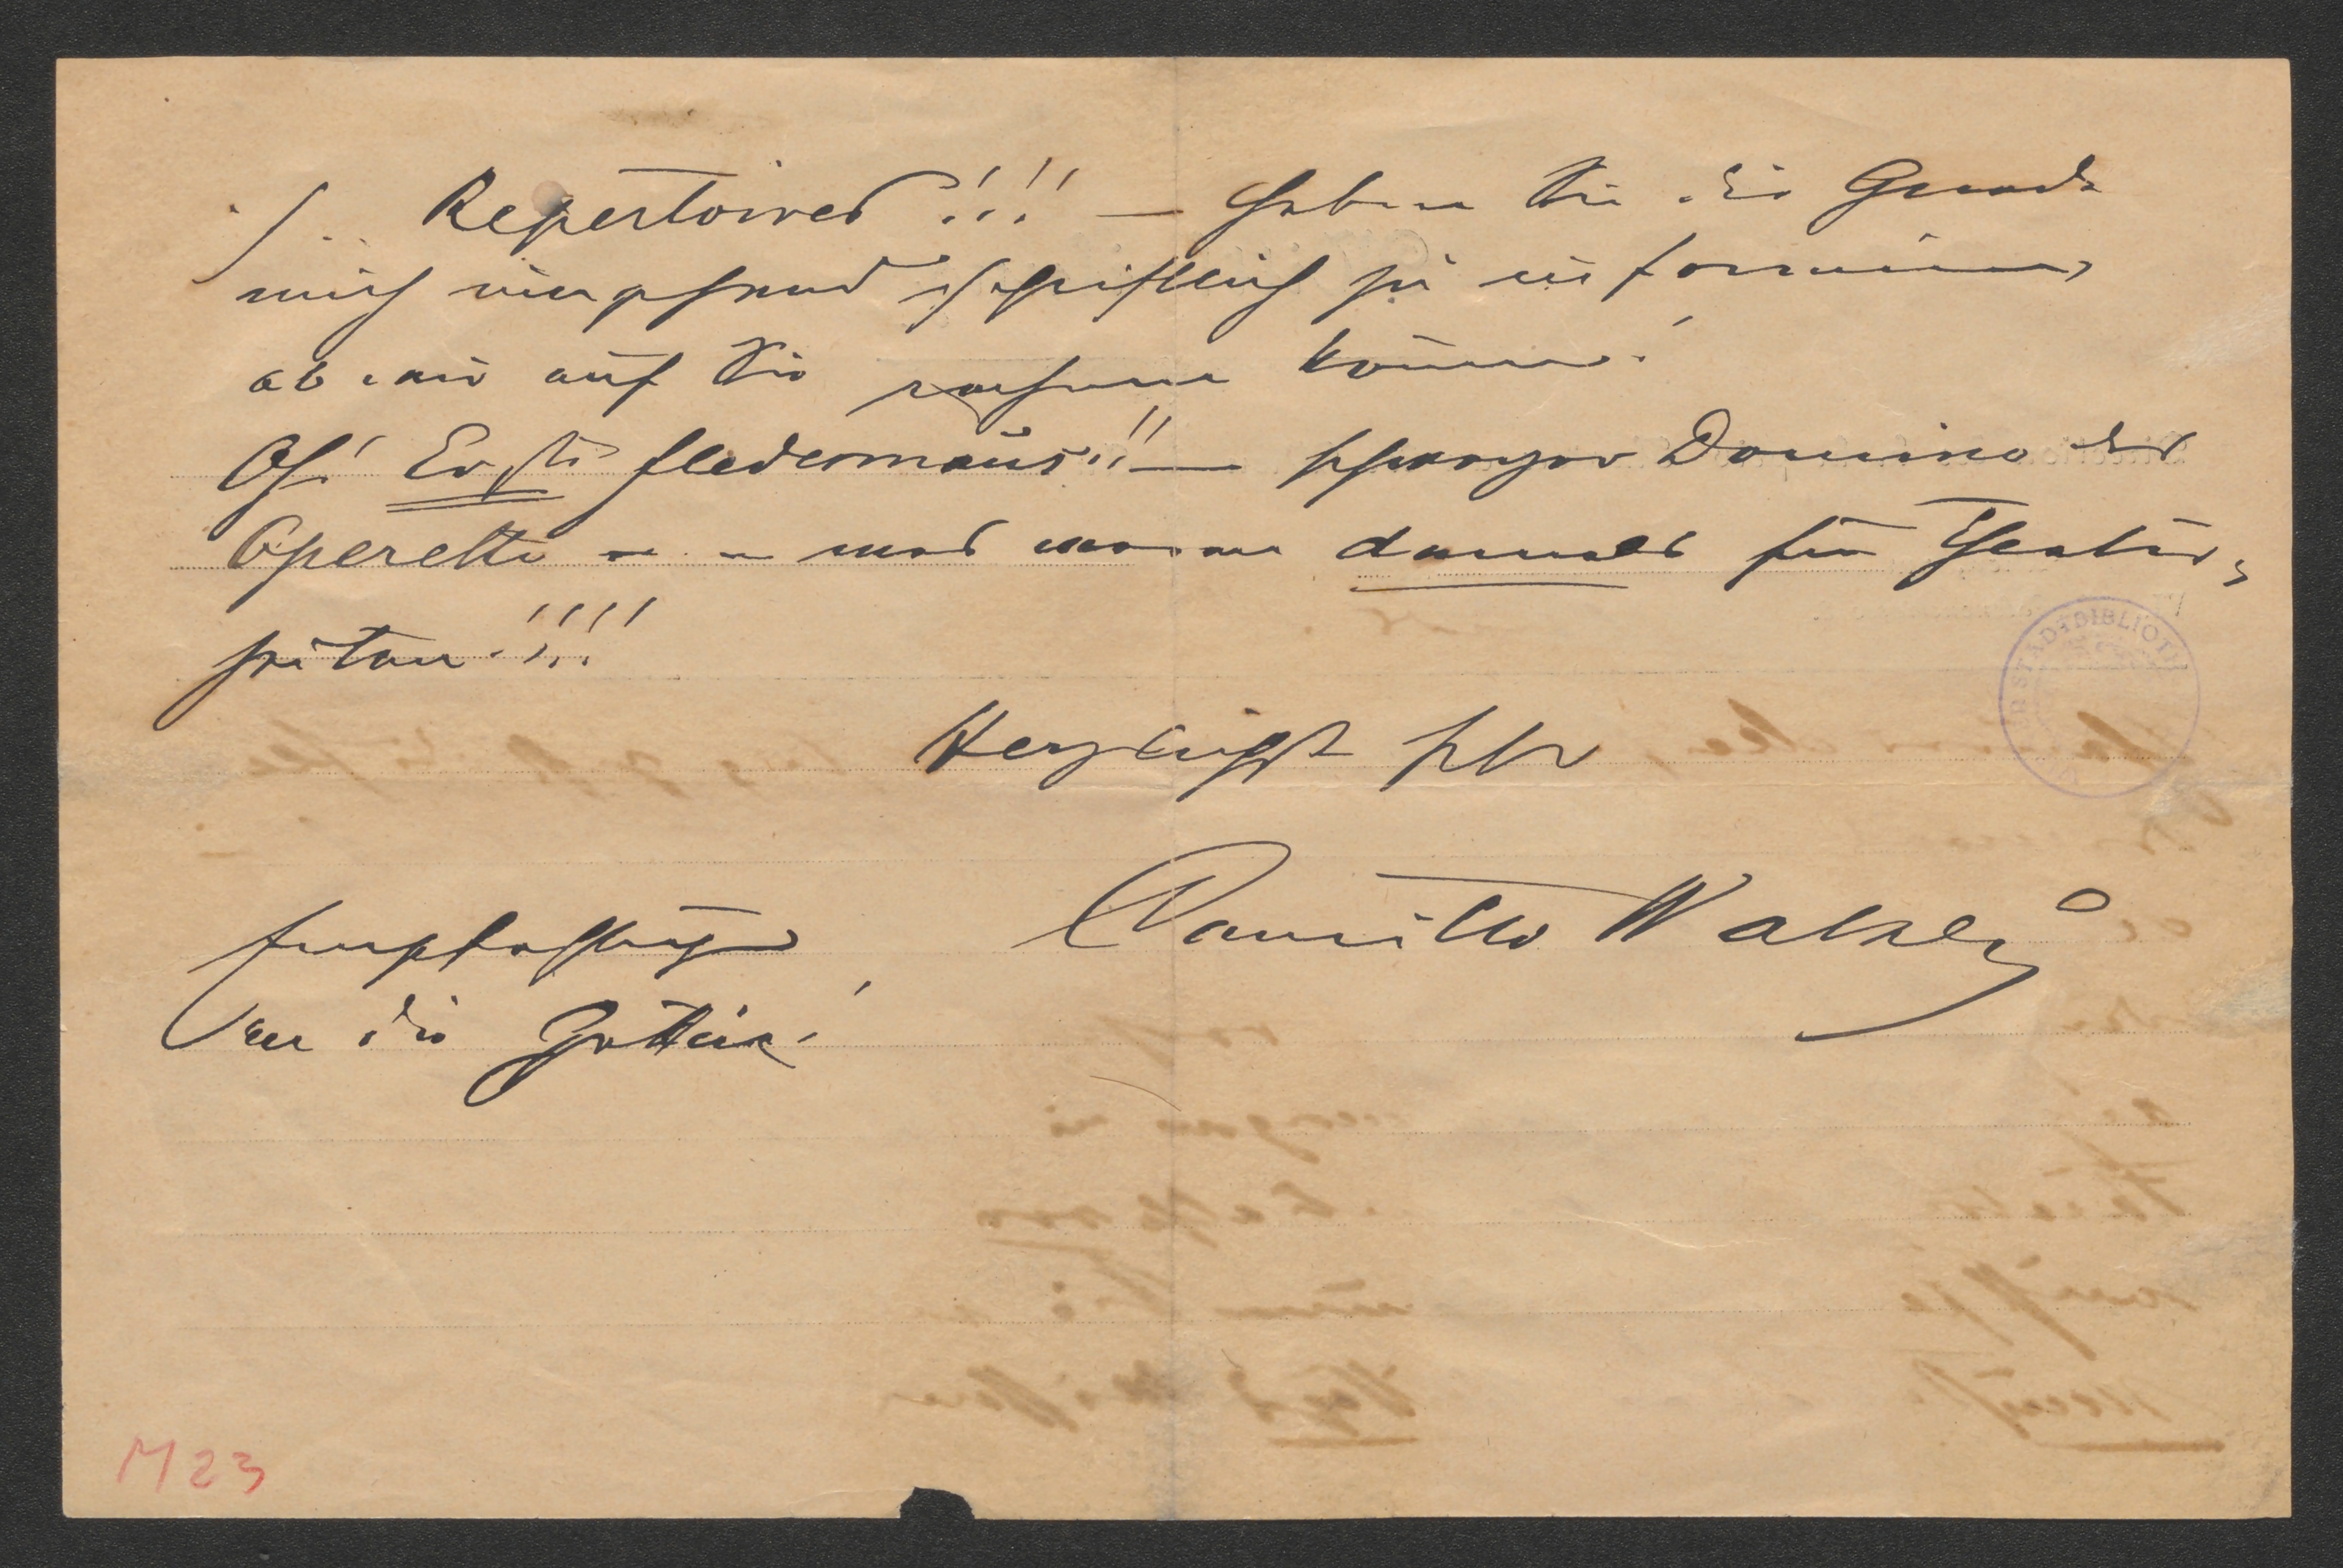 Repertoires!!! — Haben Sie die Gnade
mich umgehend schriftlich zu informieren,
ob wir auf Sie rechnen können!
Oh! Erste Fledermaus!! — schwarzer Domino der
Operette — was waren damals für Theater-
zeiten!!!!
Herzlichst Ihr
Camillo Walzel
Empfehlungen
an die Gattin!
STADTBIBLIOTH
M 23